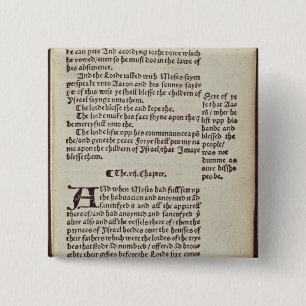 he can gete And acordyng to the vowe which
he vowed/ euen so he must doo in the lawe of
his abstinence.
And the Lorde talked with Moses sayen
ge: speake vnto Aaron and his sonnes sayen
ge: of this wise ye shall blesse the childern of
Israel saynge vnto them.
The lorde blesse the and kepe the.
The lorde make his face shyne apon the &
be mercyfull vnto the.
The lorde lifte vpp his countenaunce apo
the/ and geue the peace. For ye shall put my na
me apon the childern of Ysrael/ that I maye
blesse them.
Here of ye
se that Aarō
lift vpp his
hande and
blessed the
people/
was not
dumme as
oure bissho
pes be.
¶ The .vij. Chapter.
And when Moses had full sett vp
the habitacion and anoynted it &
sanctifyed it and all the apparell
thereof/ and had anoynted and sanctifyed ye
alter also and all the vessels there of: then the
prynces of Ysrael heedes ouer the housses of
their fathers which were the lordes of the try
bes that stode ād numbred/ offered ād broug
their giftes before the Lorde sixe co